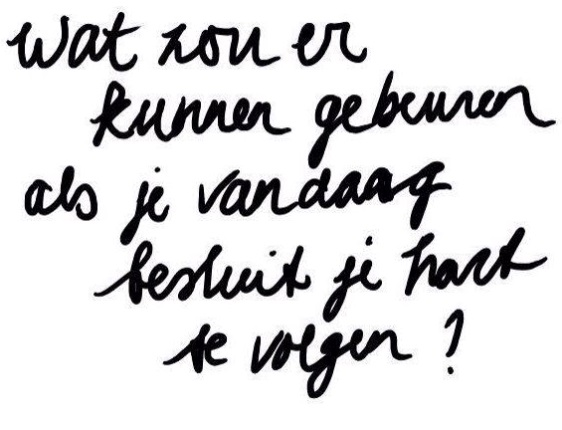 Wat zou er
kunnen gebeuren
als je vandaag
besluit je hart
te volgen?